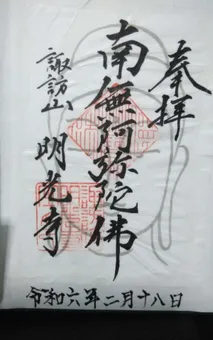 奉拝
南無阿弥陀佛
諏訪山 明光寺
令和六年二月十八日